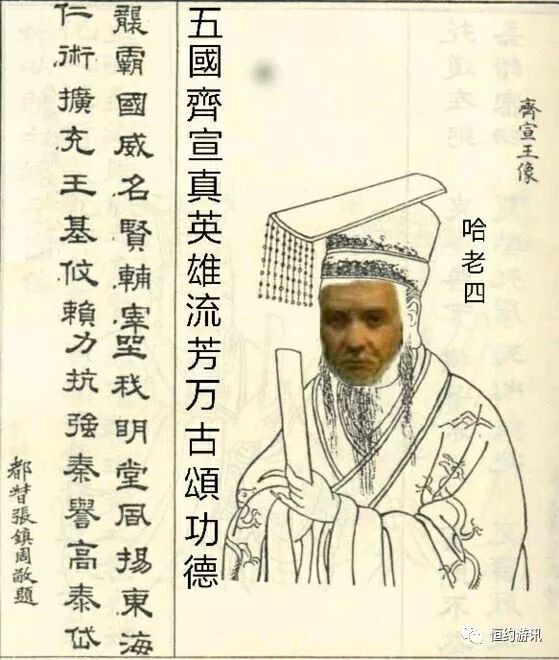 齊宣王像
哈老四
五國齊宣真英雄流芳万古頌功德
襲霸國威名賢輔宰我明堂風揚東海
仁術擴充王基攸賴力抗強秦譽高泰岱
都督張鎮周敬題
恒约游讯